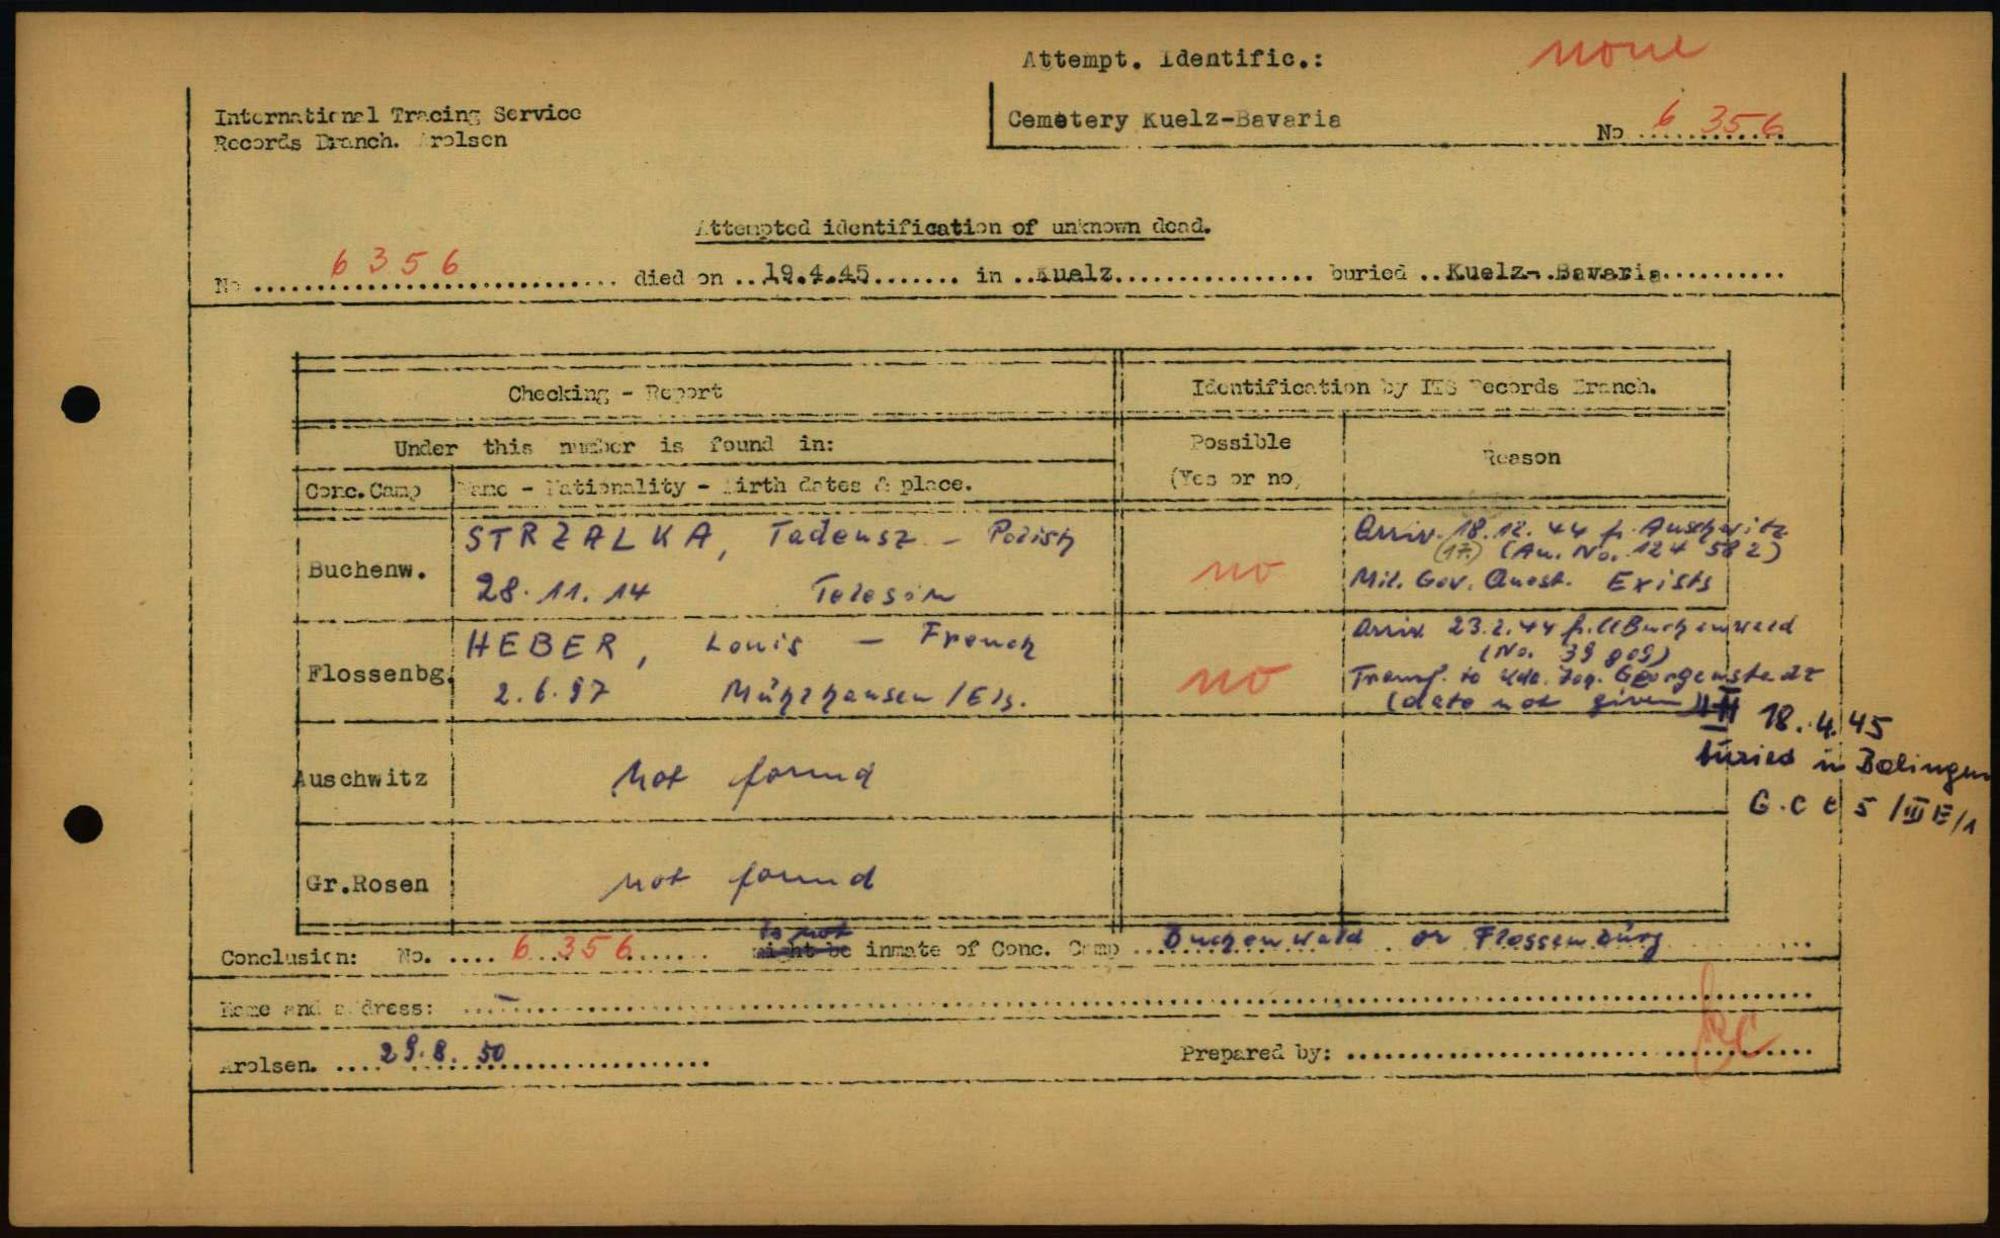 Attempt. Identific.: none
International Tracing Service
Records Branch. Arolsen
Cemetery Kuelz-Bavaria
No 6 356
Attempted identification of unknown dead.
No 6356 died on ..19.4.45....... in ..Kuelz................ buried ..Kuelz-.Bavaria..........
Checking - Report
Identification by ITS Records Branch.
Under this number is found in:
Possible
(Yes or no)
Reason
Conc.Camp
Name - Nationality - Birth dates & place.
Buchenw.
STRZALKA, Tadeusz - Polish
28.11.14 Telesin
no
Arriv. 18.12.44 fr. Auschwitz
(17.) (Au. No. 124 582)
Mil. Gov. Quest. Exists
Flossenbg.
HEBER, Louis - French
2.6.97 Mühlhausen/Els.
no
Arriv. 23.2.44 fr. CC Buchenwald
(No. 39 809)
Transf. to Kdo. Georgenstadt
(date not given)
18.4.45
buried in Bolingen
G.C C 5 /III E/1
Auschwitz
not found
Gr.Rosen
not found
Conclusion: No. .... 6 356 ....... is not might be inmate of Conc. Camp ... Buchenwald or Flossenbürg
Name and address: –
Arolsen. .... 29.8.50
Prepared by: